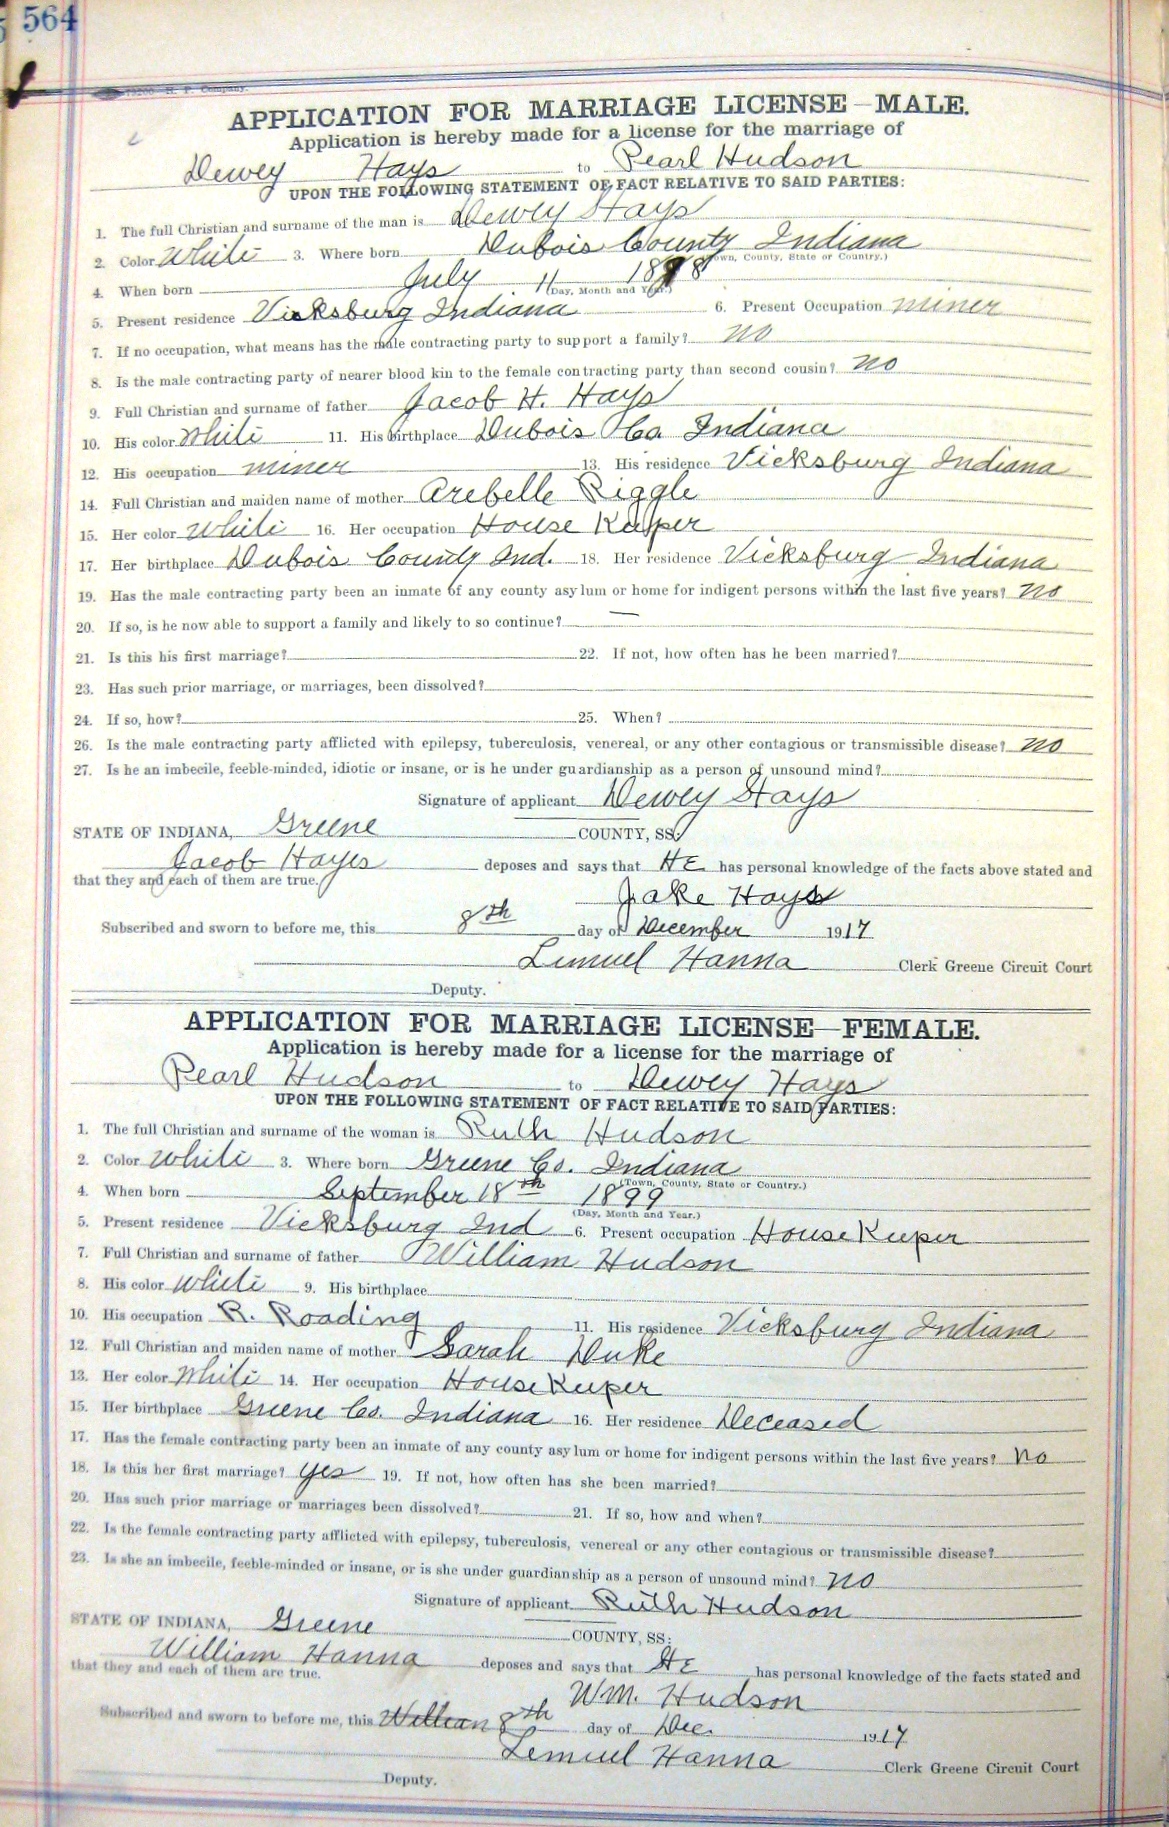 564
APPLICATION FOR MARRIAGE LICENSE—MALE.
Application is hereby made for a license for the marriage of
Dewey Hays to Pearl Hudson
UPON THE FOLLOWING STATEMENT OF FACT RELATIVE TO SAID PARTIES:
1. The full Christian and surname of the man is Dewey Hays
2. Color White 3. Where born Dubois County Indiana
(Town, County, State or Country.)
4. When born July 11 1898
(Day, Month and Year.)
5. Present residence Vicksburg Indiana 6. Present Occupation miner
7. If no occupation, what means has the male contracting party to support a family? no
8. Is the male contracting party of nearer blood kin to the female contracting party than second cousin? no
9. Full Christian and surname of father Jacob H. Hays
10. His color White 11. His birthplace Dubois Co Indiana
12. His occupation miner 13. His residence Vicksburg Indiana
14. Full Christian and maiden name of mother Arebelle Riggle
15. Her color White 16. Her occupation House Keeper
17. Her birthplace Dubois County Ind. 18. Her residence Vicksburg Indiana
19. Has the male contracting party been an inmate of any county asylum or home for indigent persons within the last five years? no
20. If so, is he now able to support a family and likely to so continue? —
21. Is this his first marriage? 22. If not, how often has he been married?
23. Has such prior marriage, or marriages, been dissolved?
24. If so, how? 25. When?
26. Is the male contracting party afflicted with epilepsy, tuberculosis, venereal, or any other contagious or transmissible disease? no
27. Is he an imbecile, feeble-minded, idiotic or insane, or is he under guardianship as a person of unsound mind?
Signature of applicant Dewey Hays
STATE OF INDIANA, Greene COUNTY, SS:
Jacob Hayes deposes and says that HE has personal knowledge of the facts above stated and
that they and each of them are true.
Jake Hays
Subscribed and sworn to before me, this 8th day of December 1917
Lemuel Hanna Clerk Greene Circuit Court
Deputy.
APPLICATION FOR MARRIAGE LICENSE—FEMALE.
Application is hereby made for a license for the marriage of
Pearl Hudson to Dewey Hays
UPON THE FOLLOWING STATEMENT OF FACT RELATIVE TO SAID PARTIES:
1. The full Christian and surname of the woman is Ruth Hudson
2. Color White 3. Where born Greene Co. Indiana
(Town, County, State or Country.)
4. When born September 18th 1899
(Day, Month and Year.)
5. Present residence Vicksburg Ind 6. Present occupation House Keeper
7. Full Christian and surname of father William Hudson
8. His color White 9. His birthplace
10. His occupation R. Roading 11. His residence Vicksburg Indiana
12. Full Christian and maiden name of mother Sarah Duke
13. Her color White 14. Her occupation House Keeper
15. Her birthplace Greene Co. Indiana 16. Her residence Deceased
17. Has the female contracting party been an inmate of any county asylum or home for indigent persons within the last five years? No
18. Is this her first marriage? yes 19. If not, how often has she been married?
20. Has such prior marriage or marriages been dissolved? 21. If so, how and when?
22. Is the female contracting party afflicted with epilepsy, tuberculosis, venereal or any other contagious or transmissible disease?
23. Is she an imbecile, feeble-minded or insane, or is she under guardianship as a person of unsound mind? no
Signature of applicant Ruth Hudson
STATE OF INDIANA, Greene COUNTY, SS:
William Hanna deposes and says that HE has personal knowledge of the facts stated and
that they and each of them are true.
WM. Hudson
Subscribed and sworn to before me, this 8th day of Dec. 1917
Lemuel Hanna Clerk Greene Circuit Court
Deputy.